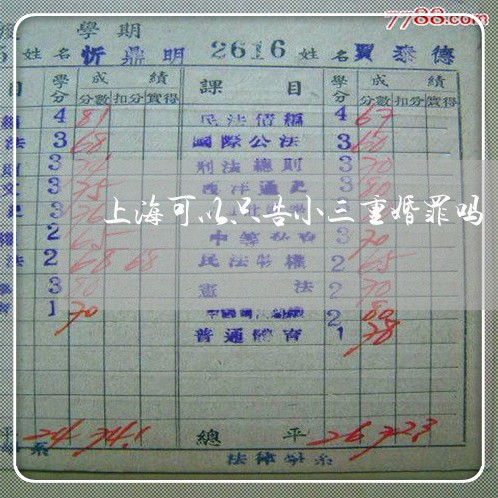 7788.com
學期
姓名 忻鼎明 2616 姓名 賈泰德
目 學分 成績 課目 學分 成績
分數 扣分 實得 分數 扣分 實得
4 81 民法債編 4 67
法 3 68 國際公法 3 60
3 刑法總則 3 70
3 75 西洋通史 3 80
上海可以只告小三重婚罪吗
2 65 3 70
法 2 68 68 民法物權 2 65
3 80 憲法 2 70
1 70 2 80
普通體育 1 78
平 24 74.1 總平 26 72.3
系 法律學系